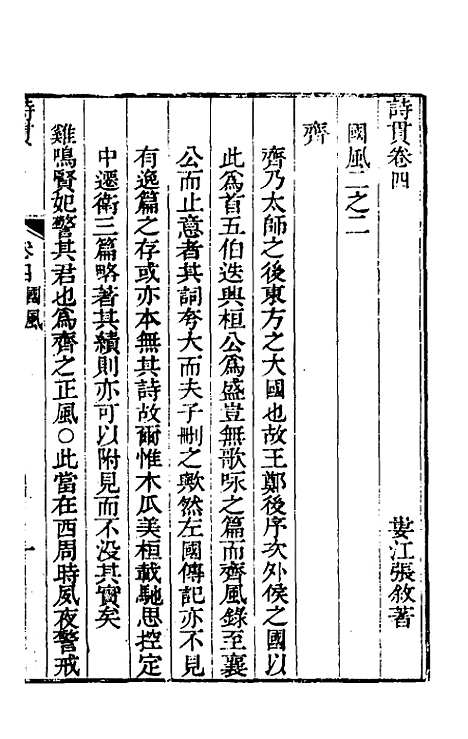 詩貫卷四
婁江張敘著
國風二之二
齊
齊乃太師之後東方之大國也故王鄭後序次外侯之國以
此為首五伯迭興桓公為盛豈無歌咏之篇而齊風錄至襄
公而止意者其詞夸大而夫子刪之歟然左國傳記亦不見
有逸篇之存或亦本無其詩故爾惟木瓜美桓載馳思控定
中遷衛三篇略著其績則亦可以附見而不沒其實矣
雞鳴賢妃警其君也為齊之正風○此當在西周時夙夜警戒
詩貫
卷四國風